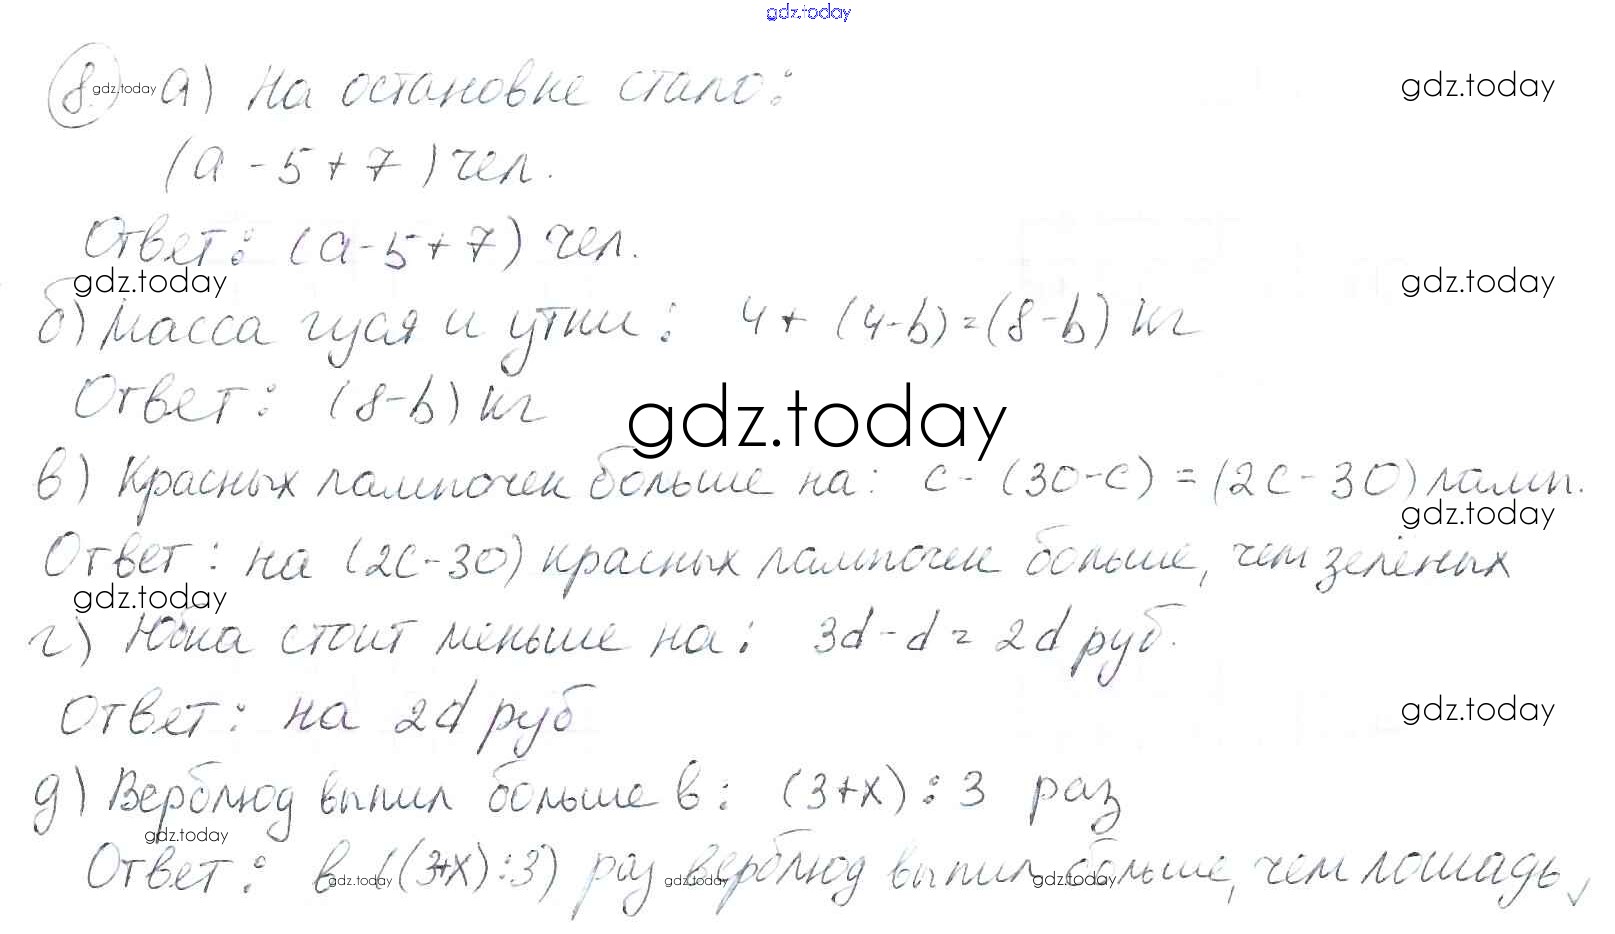 gdz.today
8. gdz.today а) На остановке стало: gdz.today
(a - 5 + 7) чел.
Ответ: (a - 5 + 7) чел.
gdz.today gdz.today
б) Масса гуся и утки: 4 + (4 - b) = (8 - b) кг
Ответ: (8 - b) кг
gdz.today
в) Красных лампочек больше на: c - (30 - c) = (2c - 30) ламп.
gdz.today
Ответ: на (2c - 30) красных лампочек больше, чем зелёных
gdz.today
г) Юбка стоит меньше на: 3d - d = 2d руб.
Ответ: на 2d руб gdz.today
д) Верблюд выпил больше в: (3 + x) : 3 раз
gdz.today
Ответ: в ((3+x) : 3) раз верблюд выпил больше, чем лошадь
gdz.today gdz.today gdz.today